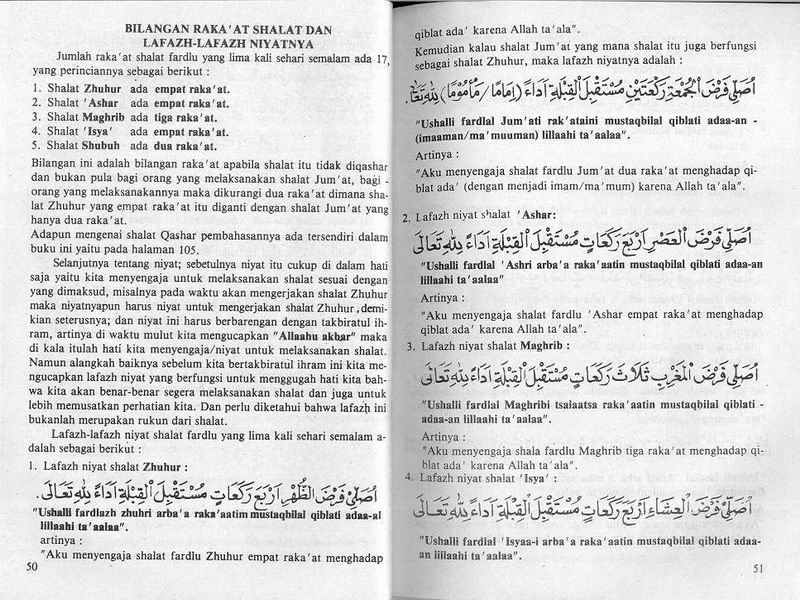 BILANGAN RAKA'AT SHALAT DAN
LAFAZH-LAFAZH NIYATNYA
Jumlah raka'at shalat fardlu yang lima kali sehari semalam ada 17,
yang perinciannya sebagai berikut :
1. Shalat Zhuhur ada empat raka'at.
2. Shalat 'Ashar ada empat raka'at.
3. Shalat Maghrib ada tiga raka'at.
4. Shalat 'Isya' ada empat raka'at.
5. Shalat Shubuh ada dua raka'at.
Bilangan ini adalah bilangan raka'at apabila shalat itu tidak diqashar
dan bukan pula bagi orang yang melaksanakan shalat Jum'at, bagi -
orang yang melaksanakannya maka dikurangi dua raka'at dimana sha-
lat Zhuhur yang empat raka'at itu diganti dengan shalat Jum'at yang
hanya dua raka'at.
Adapun mengenai shalat Qashar pembahasannya ada tersendiri dalam
buku ini yaitu pada halaman 105.
Selanjutnya tentang niyat; sebetulnya niyat itu cukup di dalam hati
saja yaitu kita menyengaja untuk melaksanakan shalat sesuai dengan
yang dimaksud, misalnya pada waktu akan mengerjakan shalat Zhuhur
maka niyatnyapun harus niyat untuk mengerjakan shalat Zhuhur, demi-
kian seterusnya; dan niyat ini harus berbarengan dengan takbiratul ih-
ram, artinya di waktu mulut kita mengucapkan "Allaahu akbar" maka
di kala itulah hati kita menyengaja/niyat untuk melaksanakan shalat.
Namun alangkah baiknya sebelum kita bertakbiratul ihram ini kita me-
ngucapkan lafazh niyat yang berfungsi untuk menggugah hati kita bah-
wa kita akan benar-benar segera melaksanakan shalat dan juga untuk
lebih memusatkan perhatian kita. Dan perlu diketahui bahwa lafazh ini
bukanlah merupakan rukun dari shalat.
Lafazh-lafazh niyat shalat fardlu yang lima kali sehari semalam a-
dalah sebagai berikut :
1. Lafazh niyat shalat Zhuhur :
اُصَلِّى فَرْضَ الظُّهْرِ اَرْبَعَ رَكَعَاتٍ مُسْتَقْبِلَ الْقِبْلَةِ اَدَاءً لِلّٰهِ تَعَالَى.
"Ushalli fardlazh zhuhri arba'a raka'aatim mustaqbilal qiblati adaa-al
lillaahi ta'aalaa".
artinya :
"Aku menyengaja shalat fardlu Zhuhur empat raka'at menghadap
50
qiblat ada' karena Allah ta'ala".
Kemudian kalau shalat Jum'at yang mana shalat itu juga berfungsi
sebagai shalat Zhuhur, maka lafazh niyatnya adalah :
اُصَلِّى فَرْضَ الْجُمْعَةِ رَكْعَتَيْنِ مُسْتَقْبِلَ الْقِبْلَةِ اَدَاءً (اِمَامًا/مَأْمُومًا) لِلّٰهِ تَعَالَى.
"Ushalli fardlal Jum'ati rak'ataini mustaqbilal qiblati adaa-an -
(imaaman/ma'muuman) lillaahi ta'aalaa".
Artinya :
"Aku menyengaja shalat fardlu Jum'at dua raka'at menghadap qi-
blat ada' (dengan menjadi imam/ma'mum) karena Allah ta'ala".
2. Lafazh niyat shalat 'Ashar:
اُصَلِّى فَرْضَ الْعَصْرِ اَرْبَعَ رَكَعَاتٍ مُسْتَقْبِلَ الْقِبْلَةِ اَدَاءً لِلّٰهِ تَعَالَى
"Ushalli fardlal 'Ashri arba'a raka'aatin mustaqbilal qiblati adaa-an
lillaahi ta'aalaa"
Artinya :
"Aku menyengaja shalat fardlu 'Ashar empat raka'at menghadap
qiblat ada' karena Allah ta'ala".
3. Lafazh niyat shalat Maghrib :
اُصَلِّى فَرْضَ الْمَغْرِبِ ثَلَاثَ رَكَعَاتٍ مُسْتَقْبِلَ الْقِبْلَةِ اَدَاءً لِلّٰهِ تَعَالَى
"Ushalli fardlal Maghribi tsalaatsa raka'aatin mustaqbilal qiblati -
adaa-an lillaahi ta'aalaa".
Artinya :
"Aku menyengaja shala fardlu Maghrib tiga raka'at menghadap qi-
blat ada' karena Allah ta'ala".
4. Lafazh niyat shalat 'Isya' :
اُصَلِّى فَرْضَ الْعِشَاءِ اَرْبَعَ رَكَعَاتٍ مُسْتَقْبِلَ الْقِبْلَةِ اَدَاءً لِلّٰهِ تَعَالَى
"Ushalli fardlal 'Isyaa-i arba'a raka'aatin mustaqbilal qiblati adaa-
an lillaahi ta'aalaa".
51